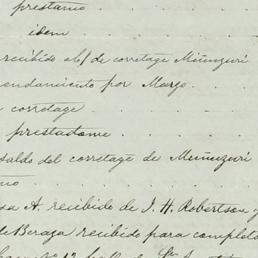 prestamo
idem
recibido a/c de corretage Muñuzuri
endamiento por Marzo.
corretage
prestadome
saldo del corretage de Muñuzuri
mo
sa A. recibido de J. H. Robertson y
de Beraza recibido para completo